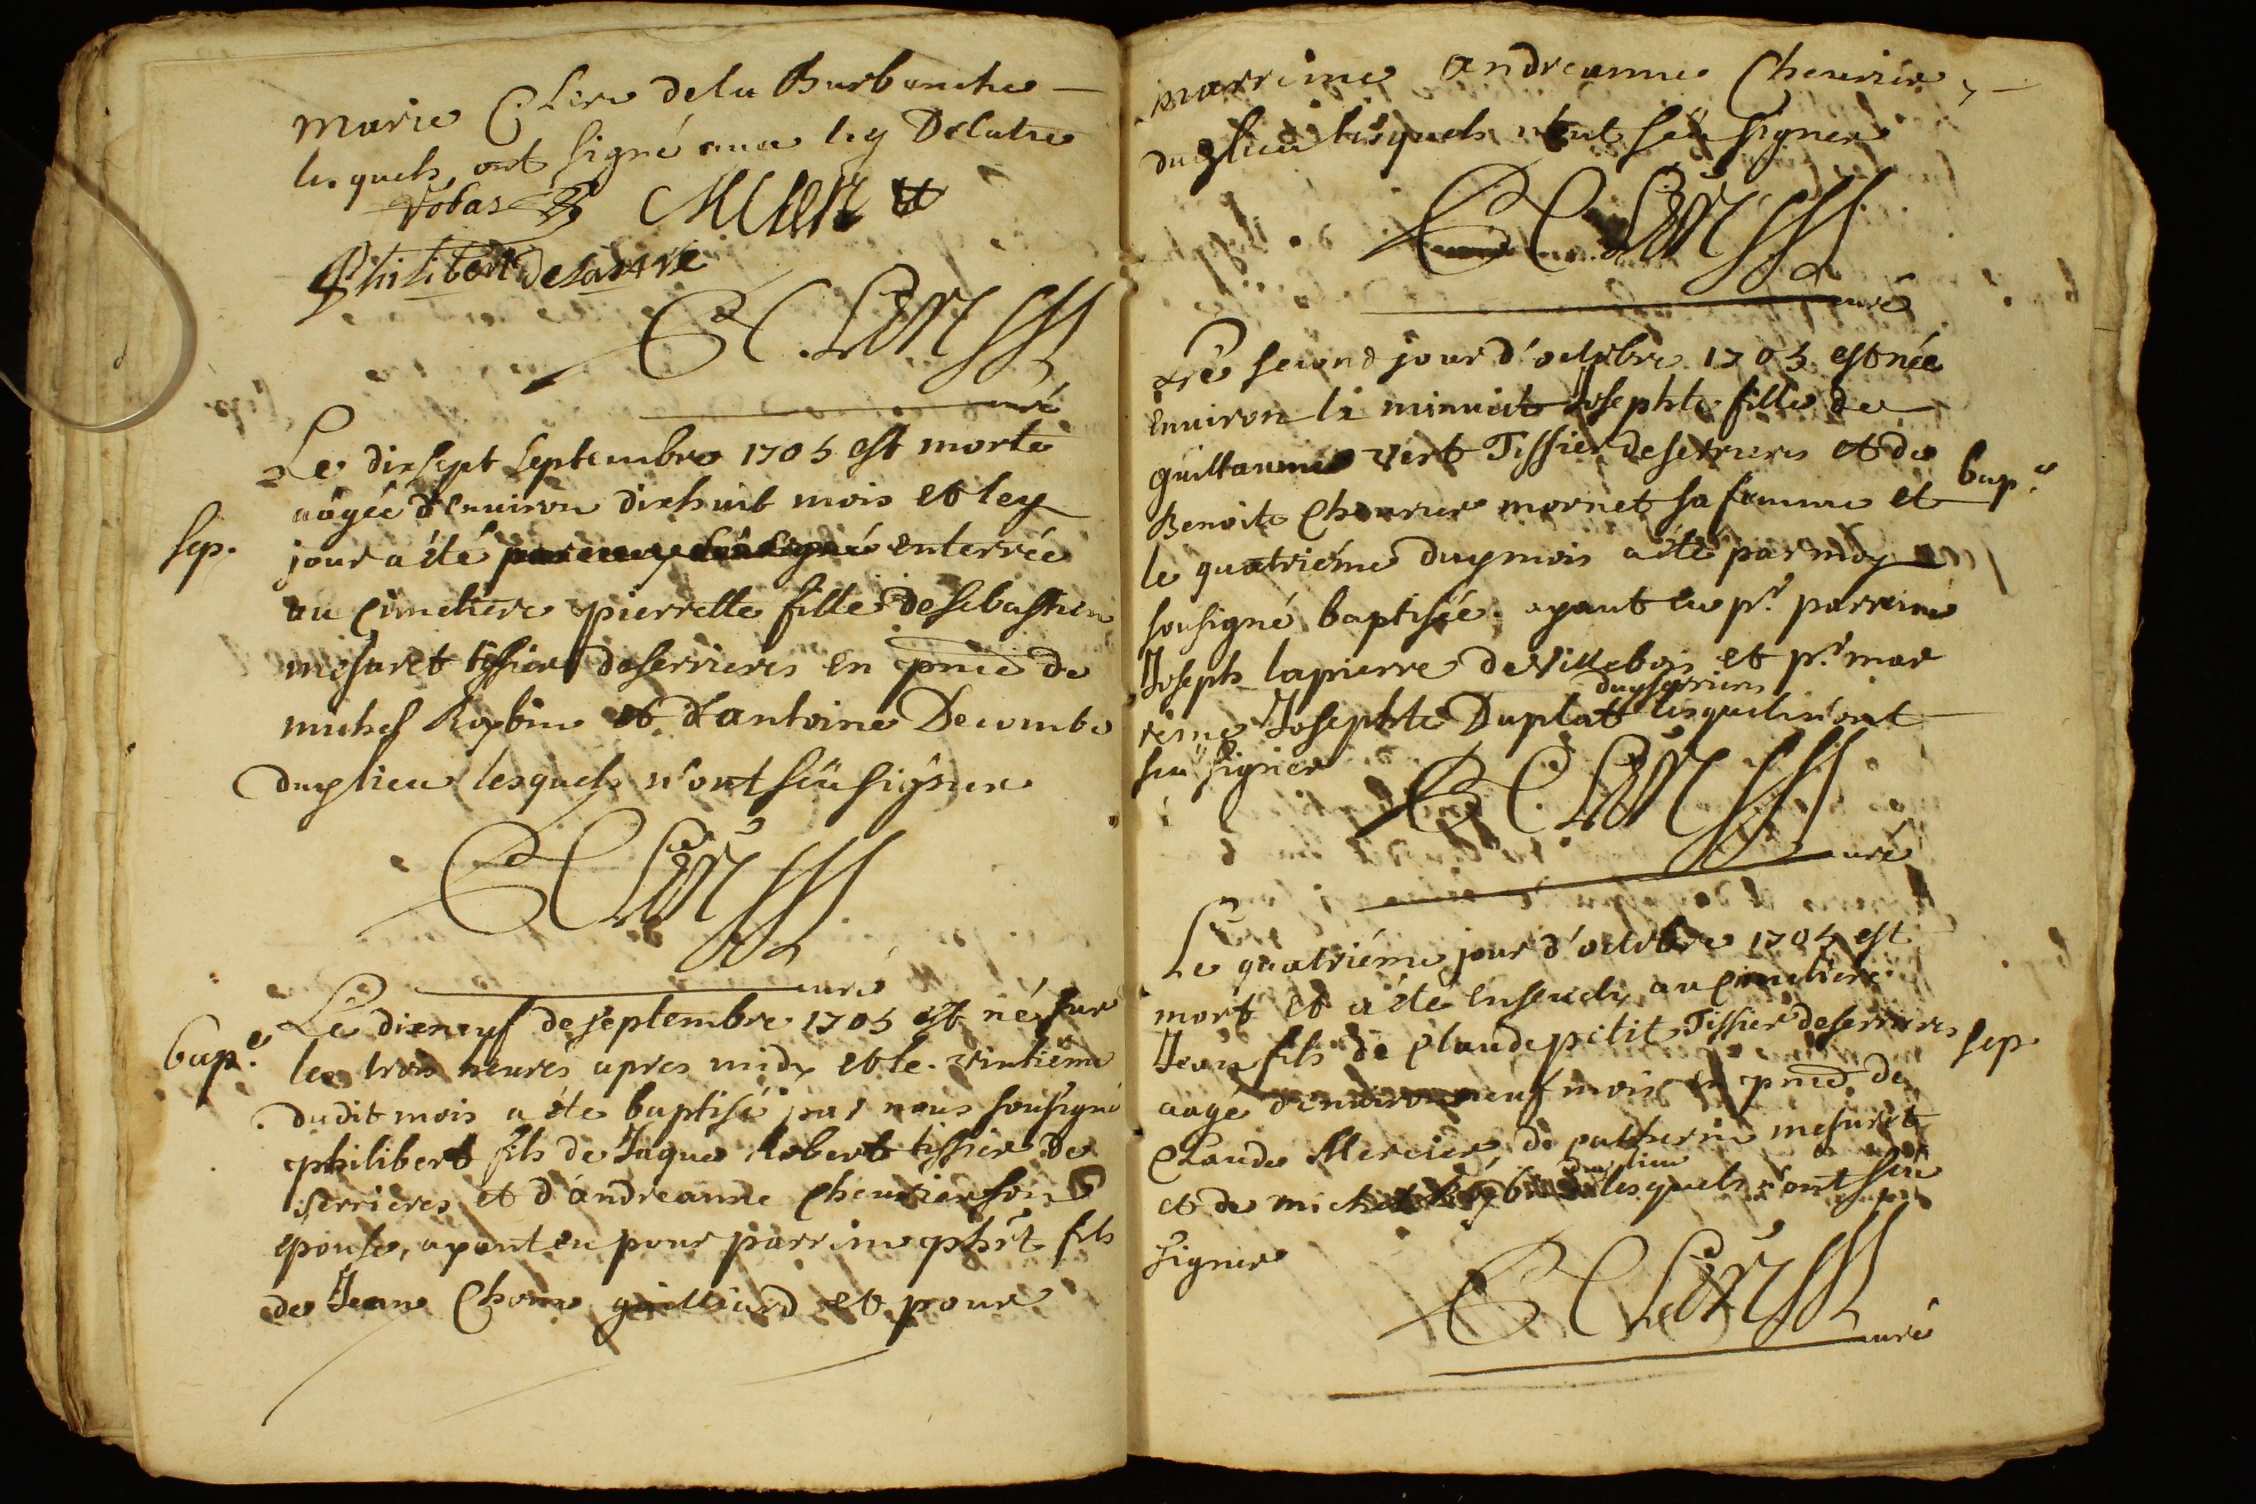 marie Clerc de la Burbanche
lesquels ont signé avec ley Delatre
Philibert delastre
curé
Le dixsept septembre 1705 est morte
aagée d'environ dixhuit mois et ley
sep.
jour a été enterrée
au cimetiere pierrette fille de sebastien
mesuret tissier de serrieres en pnce de
michel Roybin et d'antoine Decombe
duy lieu lesquels n'ont sçu signer
curé
Le dixneuf de septembre 1705 est né sur
bap.e
les trois heures apres midy et le vintiéme
dudit mois a été baptisé par nous sousigné
philibert fils de Jaque Robert tissier de
serrieres et d'andreanne chevrier son
epouse, ayant eu pour parrin phrt fils
de Jean guilliard et pour
marreine andreanne Chevrier,
duy lieu lesquels n'ont sçu signer
curé
Le second jour d'octobre 1705 est née
environ la minuit Josephte fille de
guillaume vert Tissier de serrieres et de
bap.e
Benoite chevrier mornet sa femme et
le quatriéme duy mois a été par moy
sousigné baptisée ayant eu pr. parrein
Joseph lapierre de villebois et pr. mar
duy serrieres
reine Josephte Duplatt lesquels n'ont
sçu signer
curé
Le quatriéme jour d'octobre 1705 est
mort et a été enseveli au cimetiere
Jean fils de claude petit Tissier de serrieres
sep.
aagé d'environ neuf mois en pnce de
Claude Mercier, de catherin mesuret
duy lieu
et de michel lesquels n'ont sçu
signer
curé